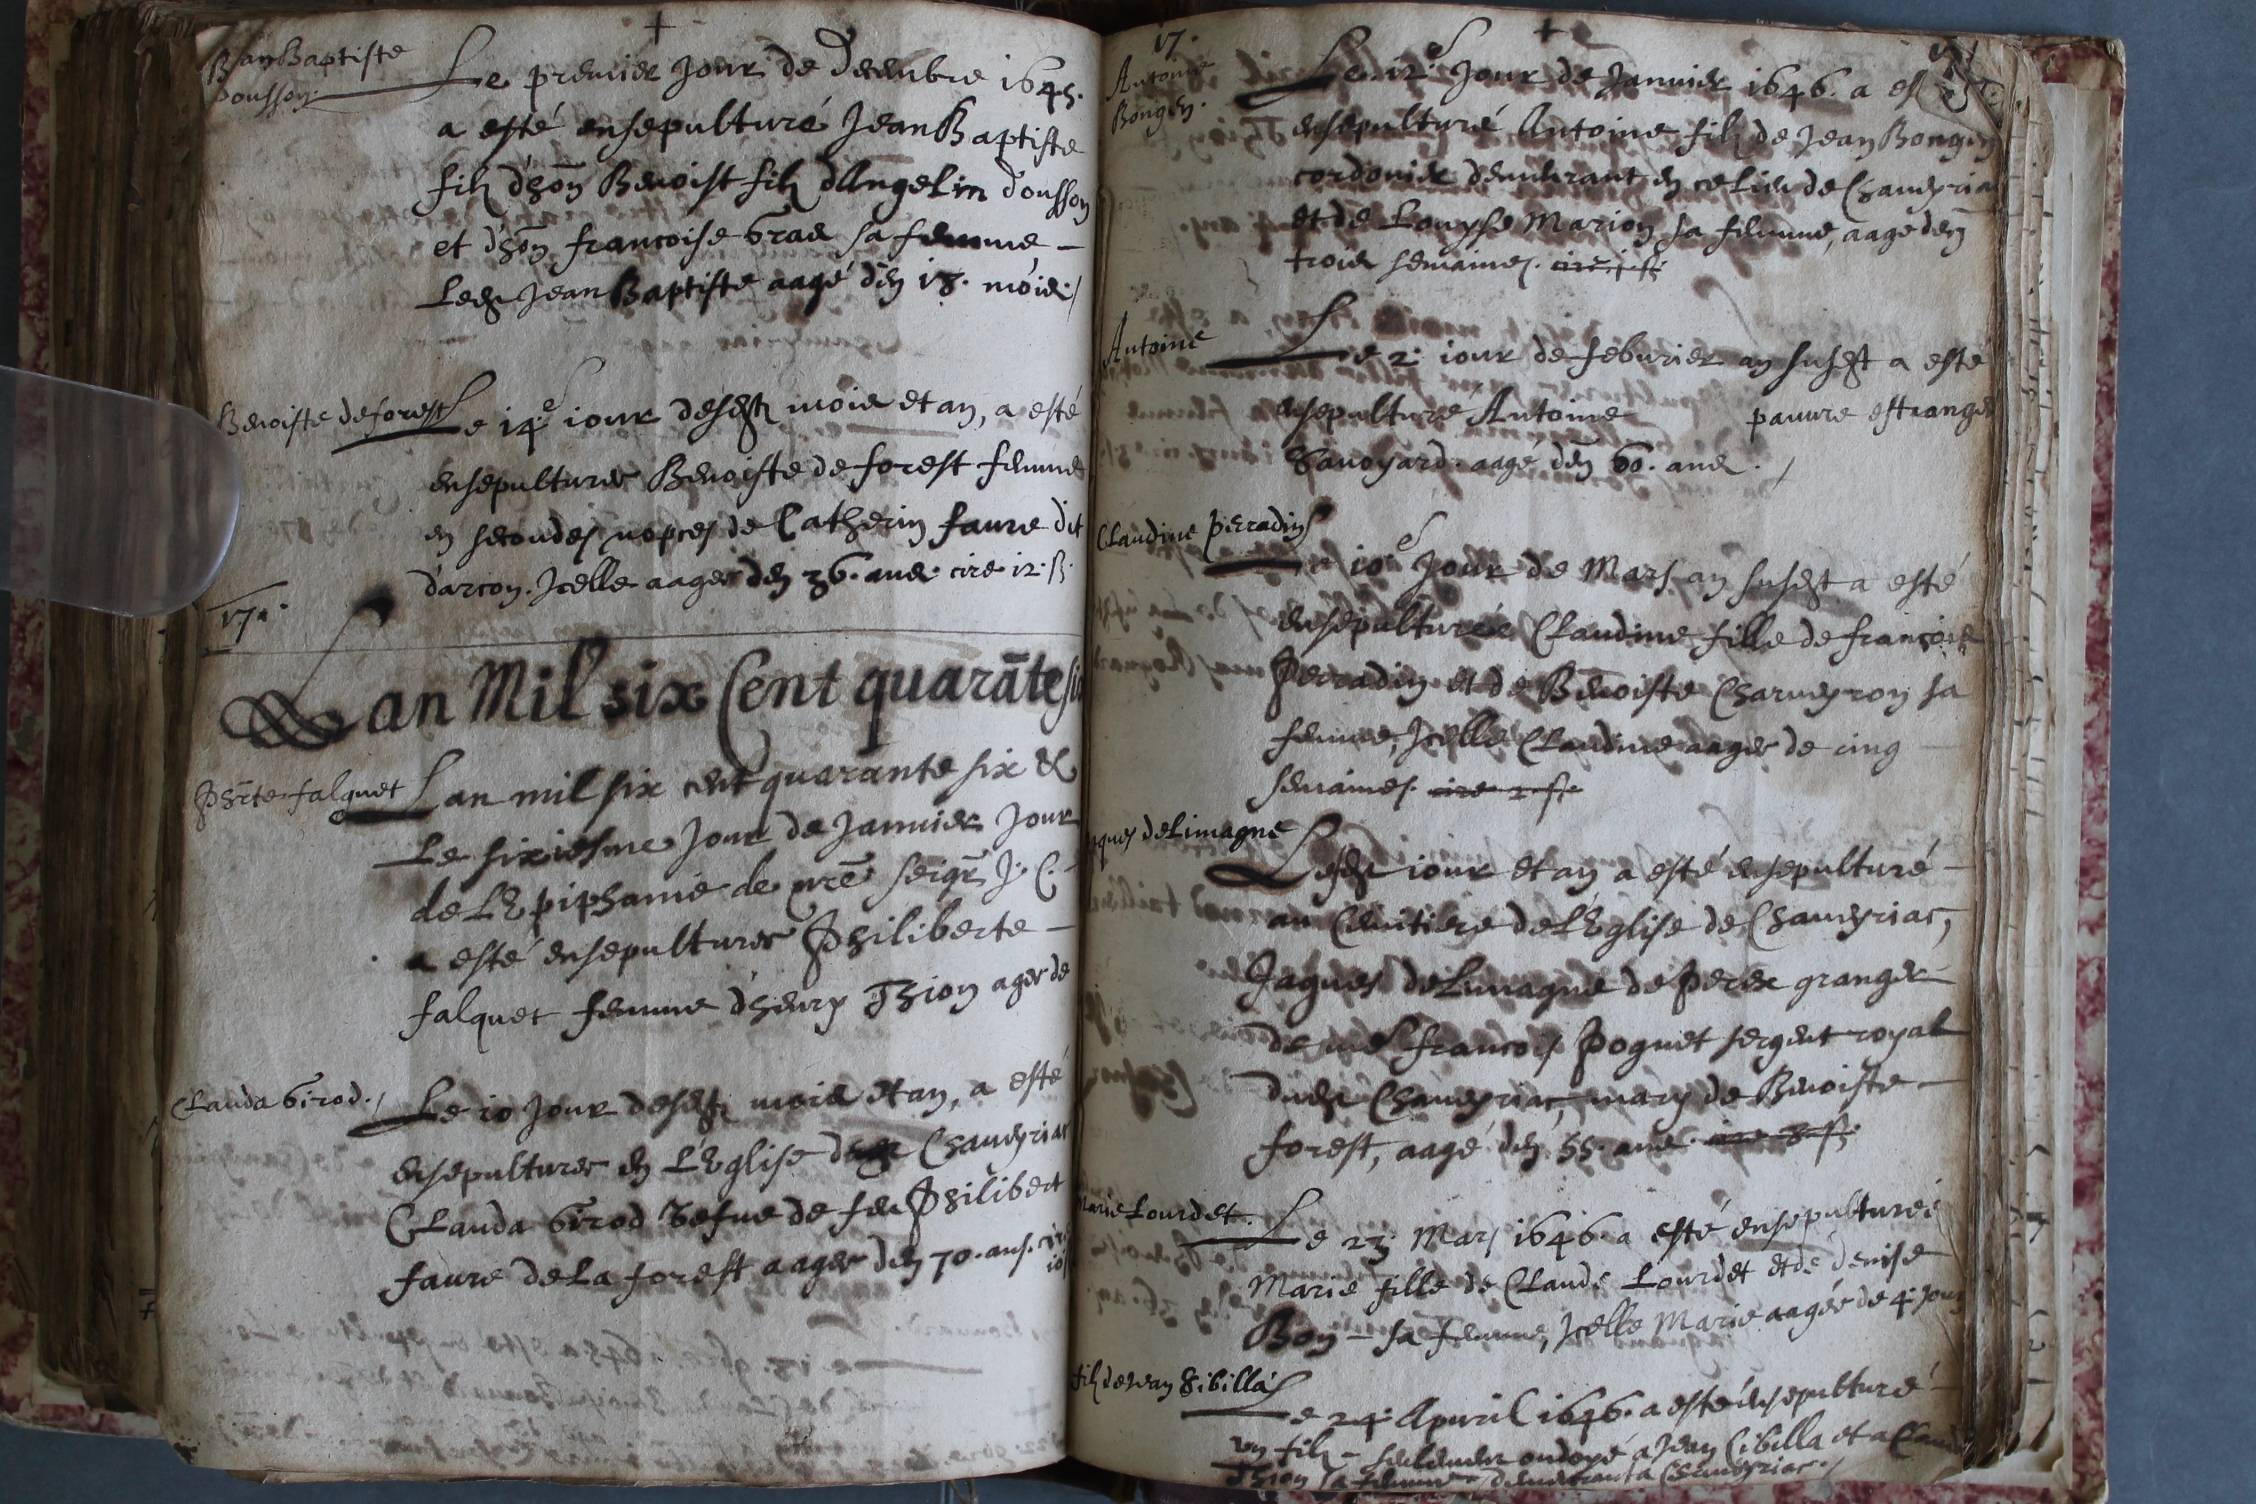 Jean Baptiste
Dousson.
Le premier Jour de Decembre 1645.
a esté ensepulturé Jean Baptiste
filz d'hōn Benoist filz d'Angelin Dousson
et d'hōn francoise Gras sa femme –
Ledt Jean Baptiste aagé d'en 18. mois /
Benoiste de forest
Le 14e iour desdt mois et an, a esté
ensepulturee Benoiste de forest femme
en secondes nopces de Catherin faure dit
d'arcon. Icelle aagee d'en 36. ans. cire 12 s.
17.
Lan Mil six Cent quarāte six
Phīte falquet
Lan mil six cent quarante six &
Le sixiesme Jour de Januier Jour
de LEpiphanie de nrē seigr J. C.
a esté ensepulturee Philiberte –
falquet femme d'henry Thion agee de
Clauda Girod. /
Le 10 Jour desdt mois et an, a esté
ensepulturee en L'Eglise de Chaueyriat
Clauda Girod Vefue de feu Philibert
faure de La forest aagee d'en 70. ans. cire
10
17.
Antoine
Bongen.
Le 12e Jour de Januier 1646. a es
ensepulturé Antoine filz de Jean Bongen
cordonier demeurant en ce Lieu de Chaueyria
et de Louyse Marion sa femme, aagé d'en
trois semaines.
Antoine
Le 2e iour de feburier an susdt a esté
ensepulturé Antoine pauure estranger
Sauoyard. aagé d'en 60. ans. /
Claudine perradin
Le 10e Jour de Mars an susdt a esté
ensepulturée Claudine fille de francois
Perradin et de Benoiste Charueyron sa
femme, Icelle Claudine aagee de cinq
semaines.
Jaques deLimagne
Lesdt iour et an a esté ensepulturé –
au Cemitiere de L'Eglise de Chaueyriac,
Jaques deLimagne de Perex granger
de me francois Poguet sergent royal
dudt Chaueyriac, mary de Benoiste –
forest, aagé d'en 55. ans.
Marie Lourdet.
Le 23 Mars 1646. a esté ensepulturée
Marie fille de Claude Lourdet et de denise
Bon – sa femme, Icelle Marie aagée de 4 jours
filz de Jean Sibilla
Le 24. Apuril 1646. a esté ensepulturé –
un filz – seulement ondoyé a Jean Cibilla et a Clauda
Thion sa femme demeurant a Chaueyriac. /